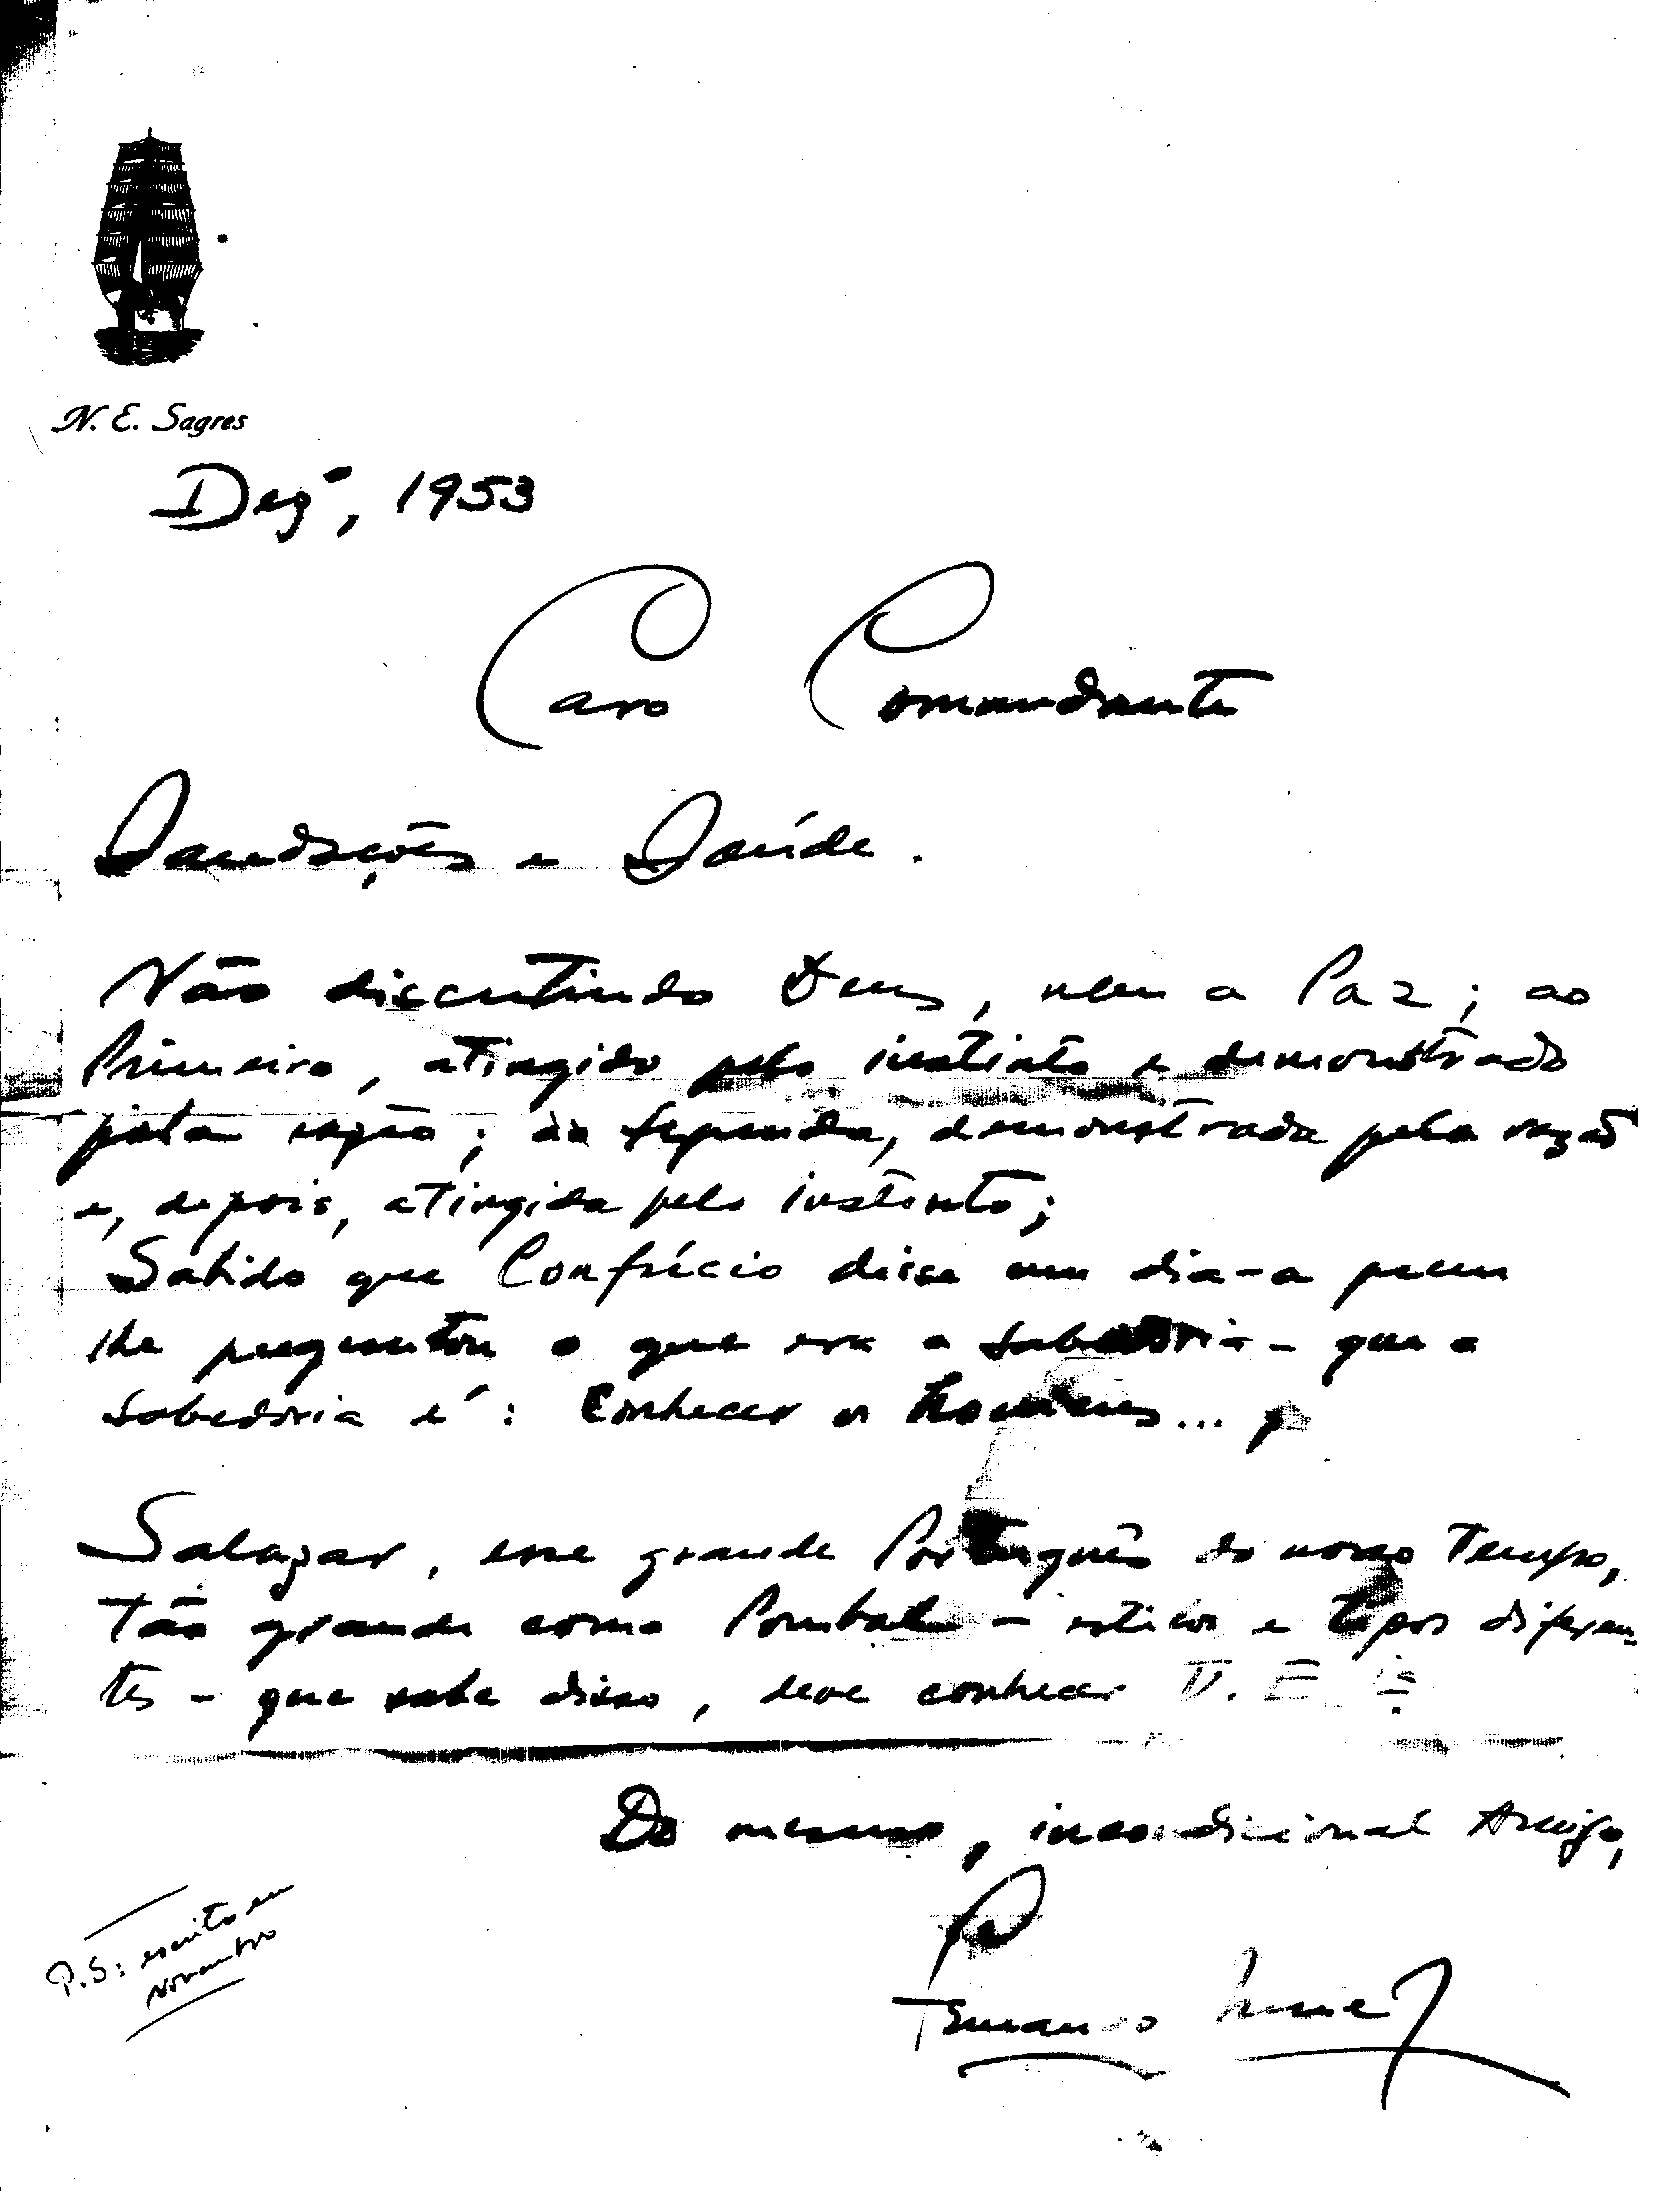 N. E. Sagres
Dezº, 1953
Caro Comandante
Saudações e Saúde.
Não discutindo Deus, nem a Paz; ao
Primeiro, atingido pelo instinto e demonstrado
pela razão; à Segunda, demonstrada pela razão
e, depois, atingida pelo instinto;
Sabido que Confúcio disse um dia - a quem
lhe perguntou o que era a sabedoria - que a
sabedoria é: Conhecer os homens...
Salazar, esse grande Português do nosso Tempo,
Tão grande como Pombal - estilos e tipos diferen-
tes - que sabe disso, deve conhecer V. E.
Do mesmo, incondicional Amigo,
Fernando
P.S: escrito em
Novembro